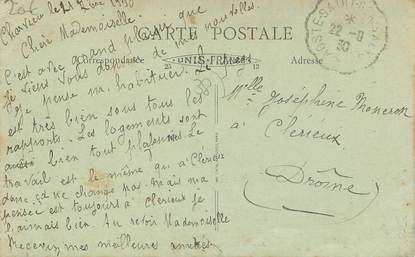 CARTE POSTALE
Correspondance
Adresse
UNIS-FRANCE
Charvieu le 21 1930
Chère Mademoiselle.
C'est avec grand plaisir que
je viens vous donner de mes nouvelles.
Je pense m'habituer. Le
est très bien sous tous les
rapports. Les logements sont
bien tout Le
travail est le même qu'à Clérieux
donc ça ne change pas. mais ma
pensée est toujours à Clérieux je
l'aimais bien. Au revoir Mademoiselle
Recevez mes meilleures amitiés.
22-9
30
Melle Joséphine
à Clérieux
Drôme